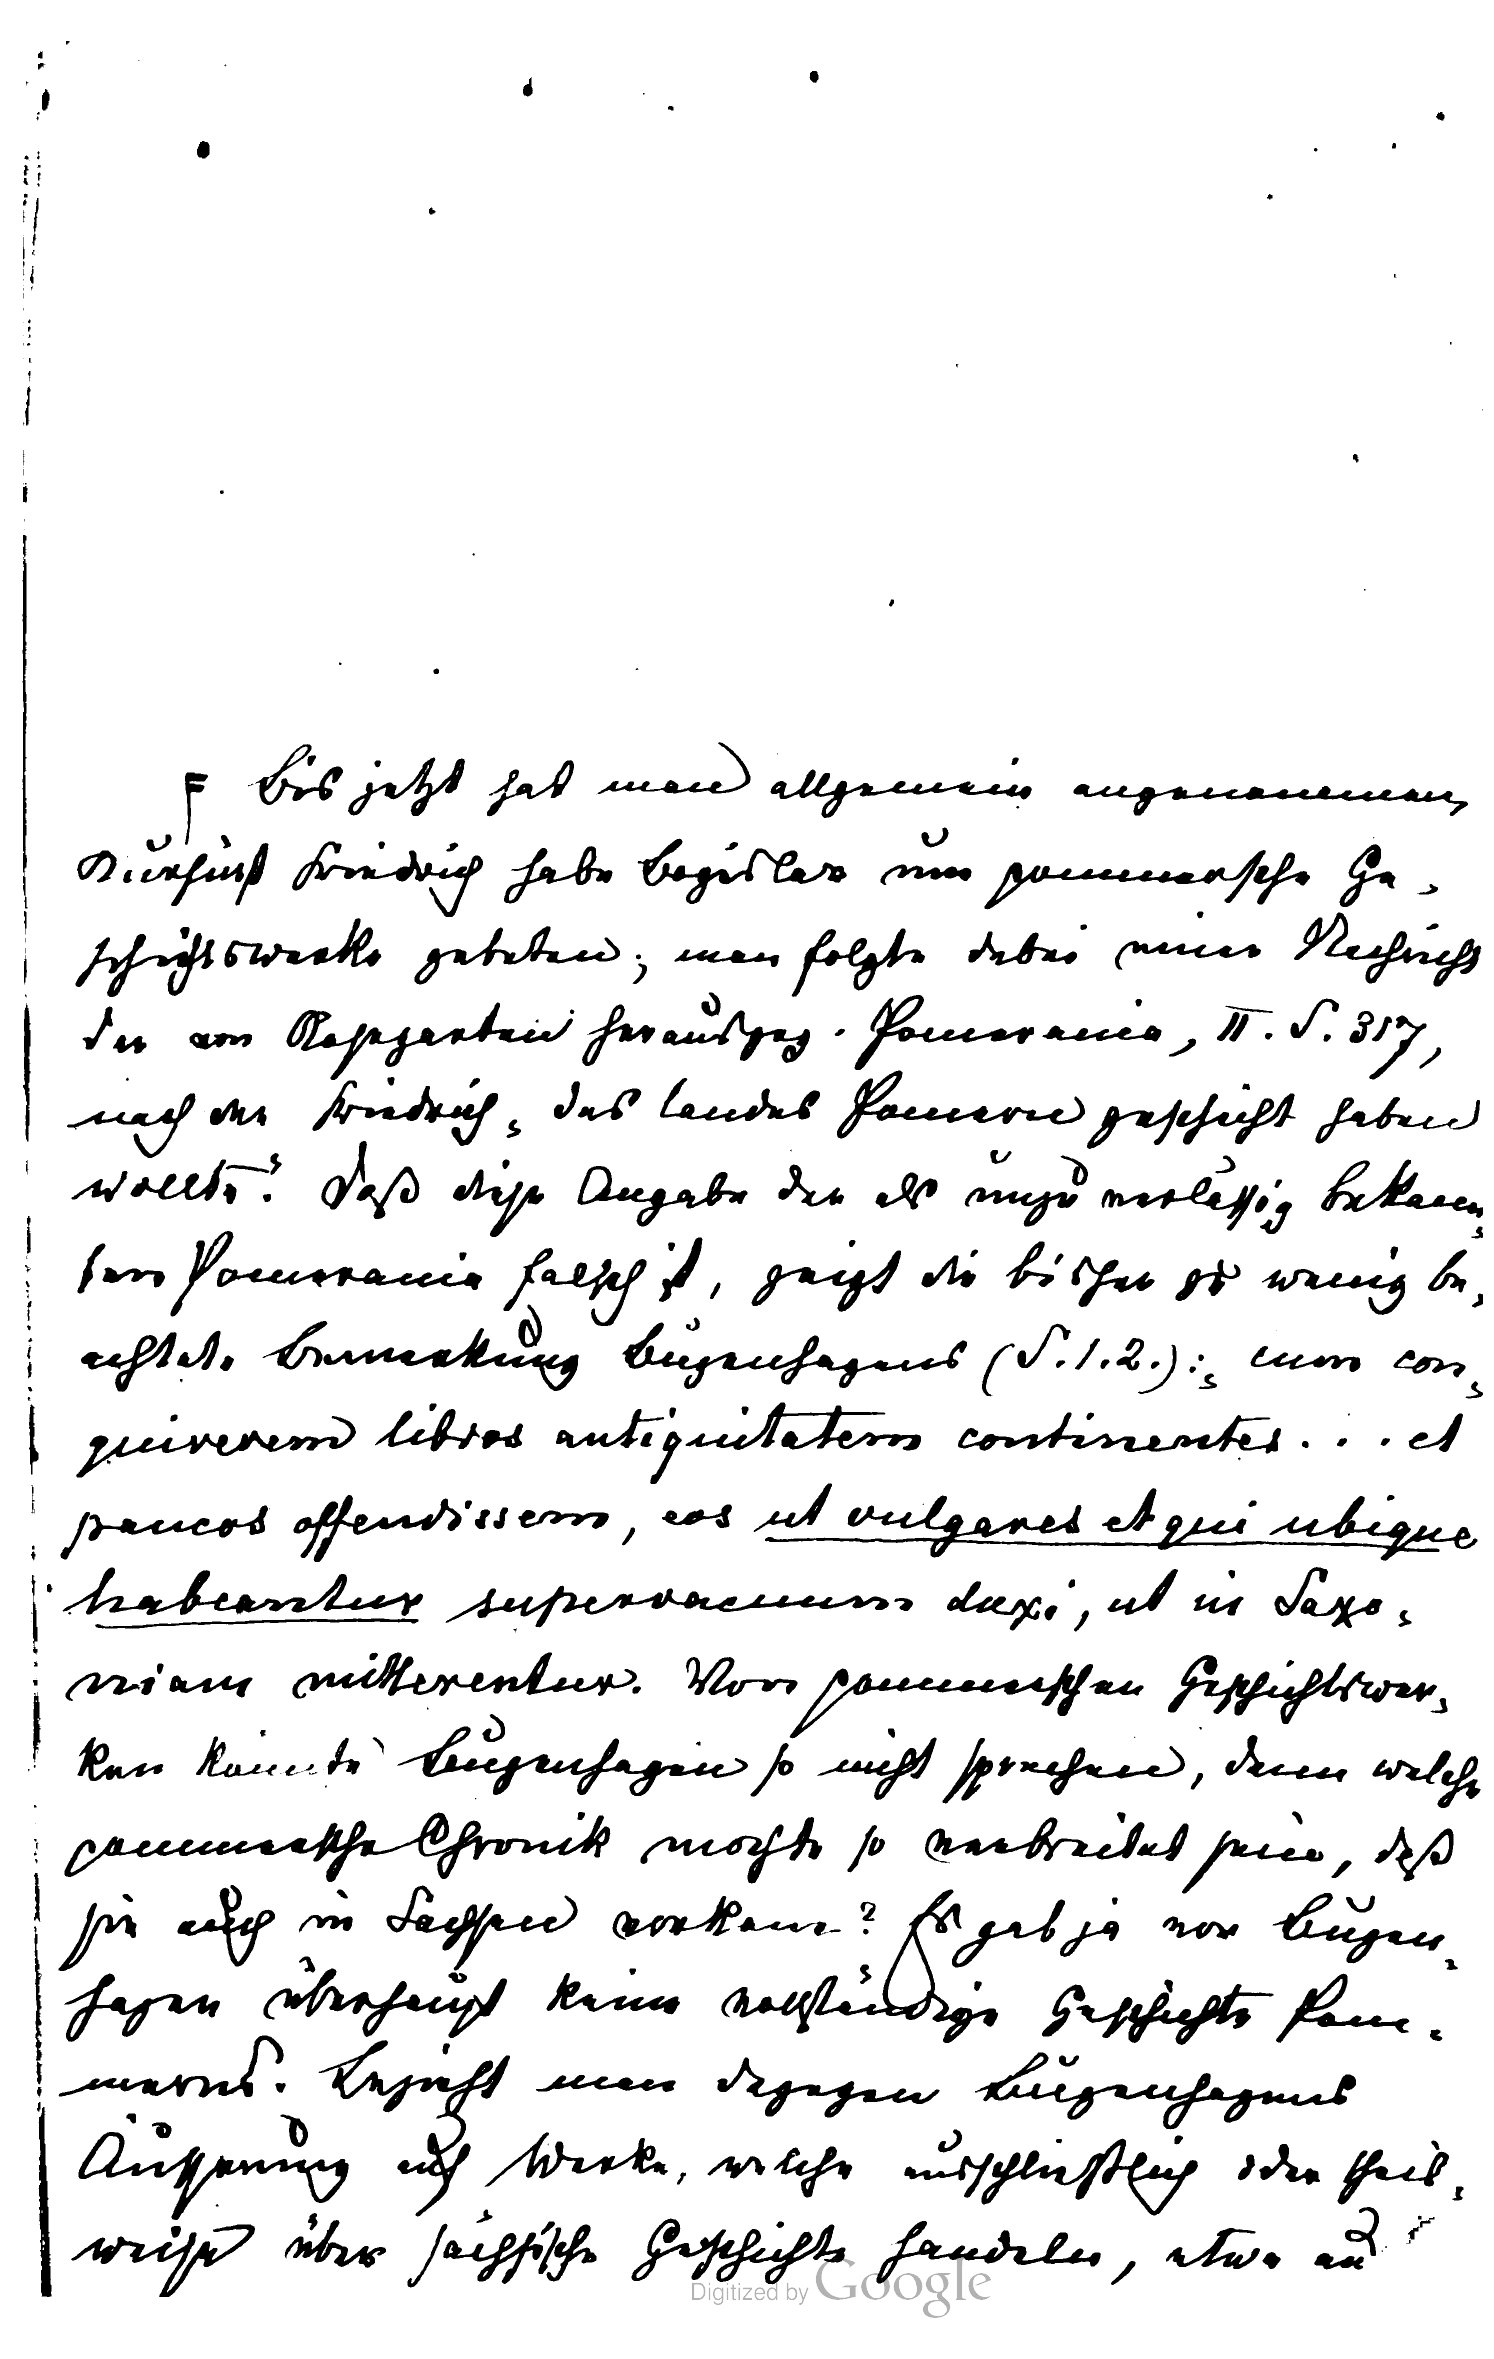 F Bis jetzt hat man allgemein angenommen,
Kurfürst Friedrich habe Bogislav um pommersche Ge-
schichtswerke gebeten; man folgte dabei einer Nachricht
der von Kosegarten herausgeg. Pomerania, II. S. 317,
nach der Friedrich „des landes Pomern geschicht haben
wollte." Daß diese Angabe der als unzuverlässig bekann-
ten Pomerania falsch ist, zeigt die bisher zu wenig be-
achtete Bemerkung Bugenhagens (S. 1. 2.): „cum con-
quirerem libros antiquitatem continentes . . . et
paucos offendissem, eos ut vulgares et qui ubique
habeantur supervacuum duxi, ut in Saxo-
niam mitterentur. Von pommerschen Geschichtswer-
ken konnte Bugenhagen so nicht sprechen, denn welche
pommersche Chronik mochte so verbreitet sein, daß
sie auch in Sachsen vorkam? Es gab ja vor Bugen-
hagen überhaupt keine vollständige Geschichte Pom-
merns. Bezieht man dagegen Bugenhagens
Äusserung auf Werke, welche ausschließlich oder theil-
weise über sächsische Geschichte handeln, etwa au
Digitized by Google